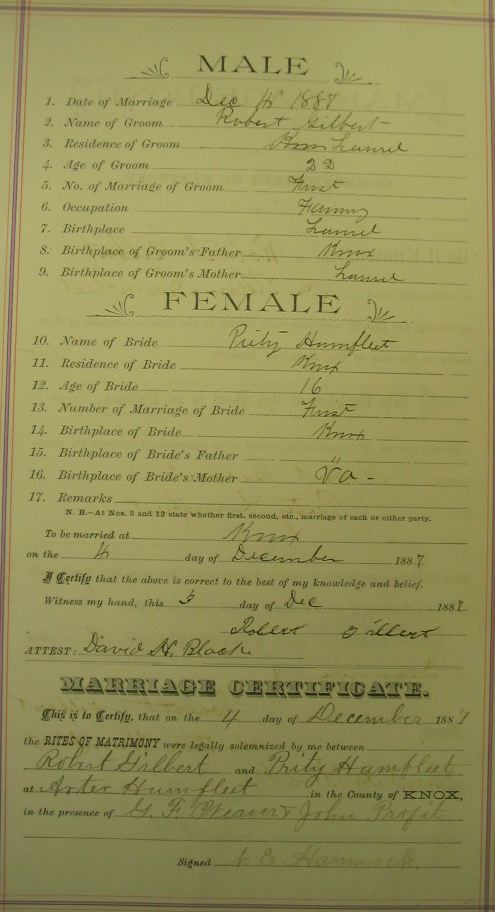 MALE
1. Date of Marriage Dec 1887
2. Name of Groom Robert Gilbert
3. Residence of Groom Laurel
4. Age of Groom 22
5. No. of Marriage of Groom First
6. Occupation
7. Birthplace Laurel
8. Birthplace of Groom's Father Knox
9. Birthplace of Groom's Mother Laurel
FEMALE
10. Name of Bride Humfleet
11. Residence of Bride Knox
12. Age of Bride 16
13. Number of Marriage of Bride First
14. Birthplace of Bride Knox
15. Birthplace of Bride's Father "
16. Birthplace of Bride's Mother Va -
17. Remarks
N. B.—At Nos. 5 and 13 state whether first, second, etc., marriage of each or either party.
To be married at Knox
on the day of December 1887
I Certify that the above is correct to the best of my knowledge and belief.
Witness my hand, this day of Dec 1887
Robert Gilbert
ATTEST: David H. Black
MARRIAGE CERTIFICATE.
This is to Certify, that on the 4 day of December 1887
the RITES OF MATRIMONY were legally solemnized by me between
Robert Gilbert and Prity Humfleet
at Humfleet in the County of KNOX,
in the presence of G. F. Weaver & John Profit
Signed